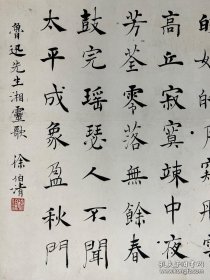 高丘寂寞竦中夜
芳荃零落無餘春
鼓完瑶瑟人不聞
太平成象盈秋門
魯迅先生湘靈歌 徐伯清